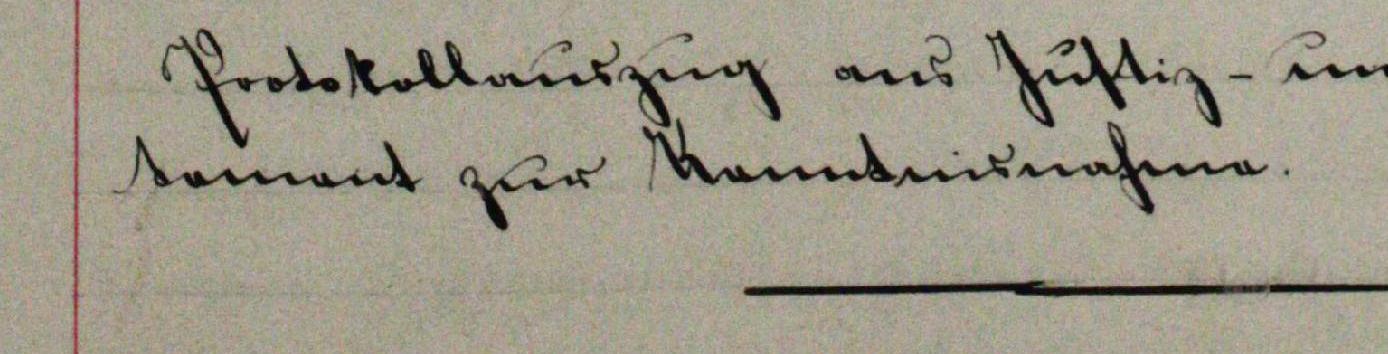 Protokollauszug ans Justiz- un
tement zur Kenntnisnahme.